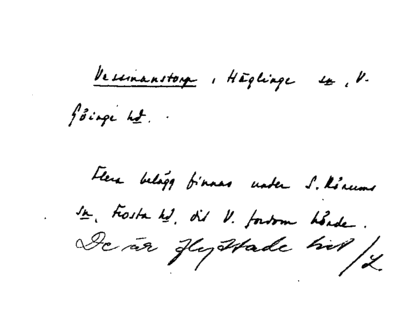 Vesslnanstorp, Häglinge sn, V-
Göinge hd.
Flera belägg finnas under S. Rörums
sn, Frosta hd, dit V. fordom hörde.
De är flyttade hit /L.